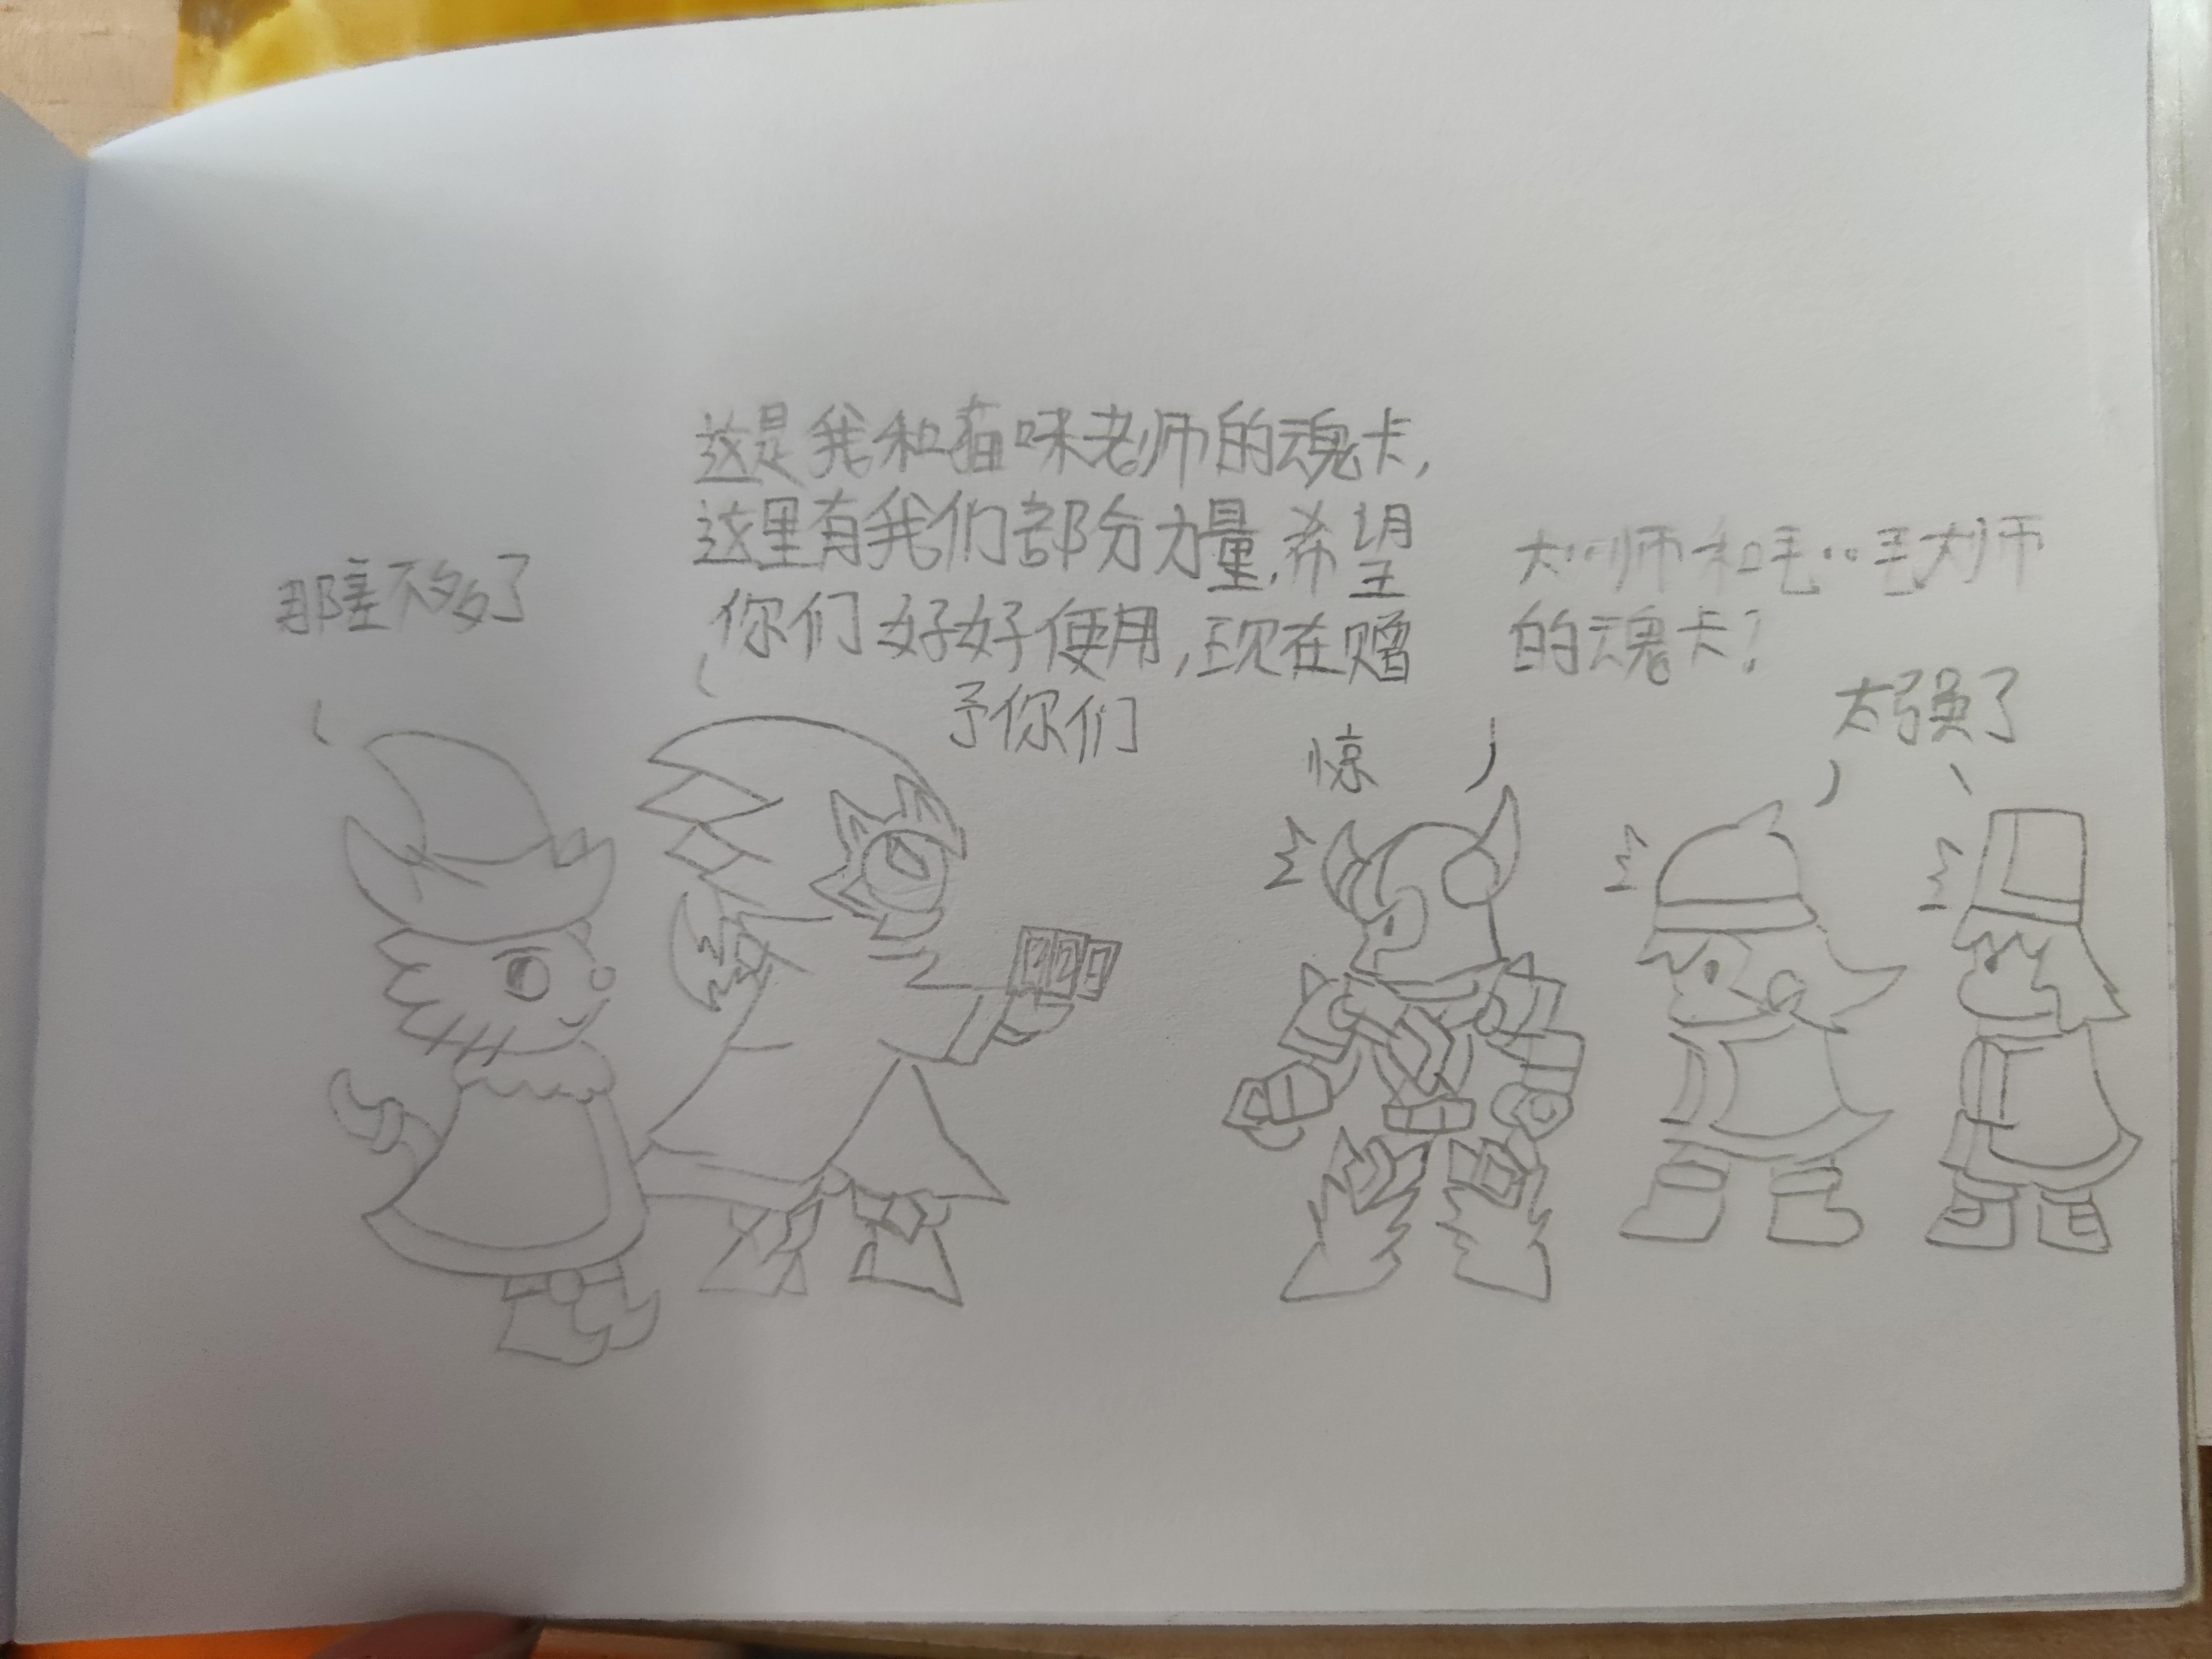 那差不多了
这是我和猫咪老师的魂卡,
这里有我们部分力量,希望
你们好好使用,现在赠
予你们
惊
大…师和毛..毛大师
的魂卡?
太强了